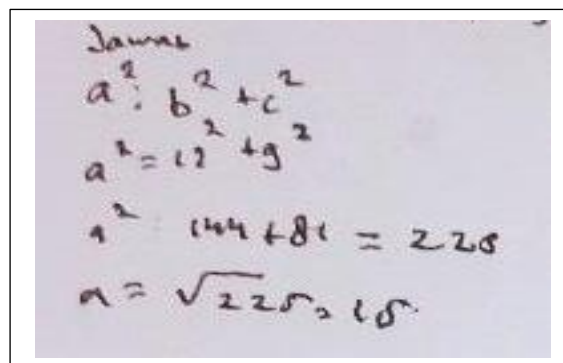 Jawab
a²: b² + c²
a² = 12² + 9²
a² 144 + 81 = 225
a = √225 = 15